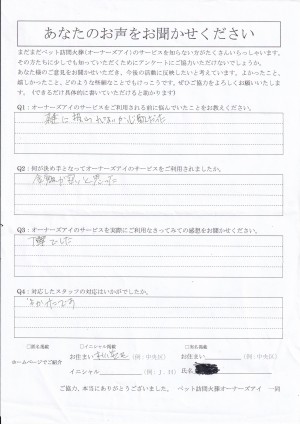 あなたのお声をお聞かせください
まだまだペット訪問火葬(オーナーズアイ)のサービスを知らない方がたくさんいらっしゃいます。
その方たちに少しでも知っていただくためにアンケートにご協力いただけないでしょうか。
あなた様のご意見をお聞かせいただき、今後の活動に反映したいと考えています。よかったこと、
嬉しかったこと、どのような些細なことでもけっこうです。ぜひご協力をよろしくお願いいたしま
す。(できるだけ具体的に書いていただけると助かります)
Q1:オーナーズアイのサービスをご利用される前に悩んでいたことをお教えください。
Q2:何が決め手となってオーナーズアイのサービスをご利用されましたか。
Q3:オーナーズアイのサービスを実際にご利用なさってみての感想をお聞かせください。
丁寧でした
Q4:対応したスタッフの対応はいかがでしたか。
よかったです
□匿名掲載 □イニシャル掲載 □実名掲載
お住まい (例:中央区) お住まい (例:中央区)
ホームページでご紹介
イニシャル (例:J.H) 氏名
ご協力、本当にありがとうございました。 ペット訪問火葬オーナーズアイ 一同